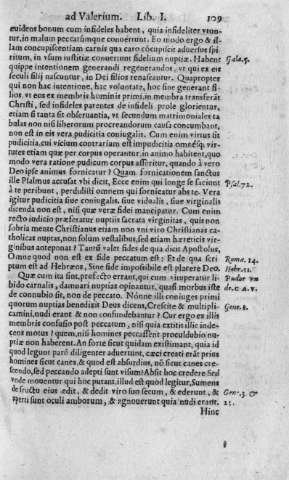 ad Valerium. Lib. I. 109
euidens bonum cum infideles habent, quia infideliter vtuntur,
in malum peccatumque conuertunt. Eo modo ergo & illam
concupiscentiam carnis qua caro cõcupiscit aduersus spiritum,
in vsum iustitiæ conuertunt fidelium nuptiæ. Habent Gala.5.
quippe intentionem generandi regenerandos, vt qui ex eis
seculi filij nascuntur, in Dei filios renascantur. Quapropter
qui non hac intentione, hac voluntate, hoc fine generant filios,
vt eos ex membris hominis primi, in membra transferãt
Christi, sed infideles parentes de infideli prole glorientur,
etiam si tanta sit obseruantia, vt secundum matrimoniales tabulas
non nisi liberorum procreandorum causa concumbant,
non est in eis vera pudicitia coniugalis. Cum enim virtus sit
pudicitia, cui vicium contrarium est impudicitia omnésq; virtutes
etiam quæ per corpus operantur, in animo habitent, quo
modo vera ratione pudicum corpus asseritur, quando à vero
Deo ipse animus fornicatur? Quam fornicationem sanctus
ille Psalmus accusat vbi dicit, Ecce enim qui longe se faciunt Psal.72.
à te peribunt, perdidisti omnem qui fornicatur abs te. Vera
igitur pudicitia siue coniugalis, siue vidualis, siue virginalis
dicenda non est, nisi quæ veræ fidei mancipatur. Cum enim
recto iudicio præferatur nuptiis sacrata virginitas, quis non
sobria mente Christianus etiam non vni viro Christianas catholicas
nuptas, non solum vestalibus, sed etiam hæreticis virginibus
anteponat? Tantũ valet fides de qua dixit Apostolus,
Omne quod non est ex fide, peccatum est: Et de qua scriptum Roma.14.
est ad Hebræos, Sine fide impossibile est placere Deo. Hebr.11.
Quæ cum ita sint, profecto errant, qui cum vituperatur libido
carnalis, damnari nuptias opinantur, quasi morbus iste
de connubio sit, non de peccato. Nónne illi coniuges primi
quorum nuptias benedixit Deus dicens, Crescite & multiplicamini, Gene.2.
nudi erant & non confundebantur? Cur ergo ex illis
membris confusio post peccatum, nisi quia extitit illic indecens
motus? quem, nisi homines peccassent proculdubio nuptiæ
non haberent. An forte sicut quidam existimant, quia id
quod legunt parũ diligenter aduerterunt, cæci creati erãt primi
homines sicut canes, & quod est absurdius, nõ sicut canes crescendo,
sed peccando adepti sunt visum? Absit hoc credere Sed
vnde mouentur qui hoc putant, illud est quod legitur, Sumens
de fructu eius ædit, & dedit viro suo secum, & ederunt, & Gen. 3. &
aperti sunt oculi amborum, & agnouerunt quia nudi erant. 25.
Hinc